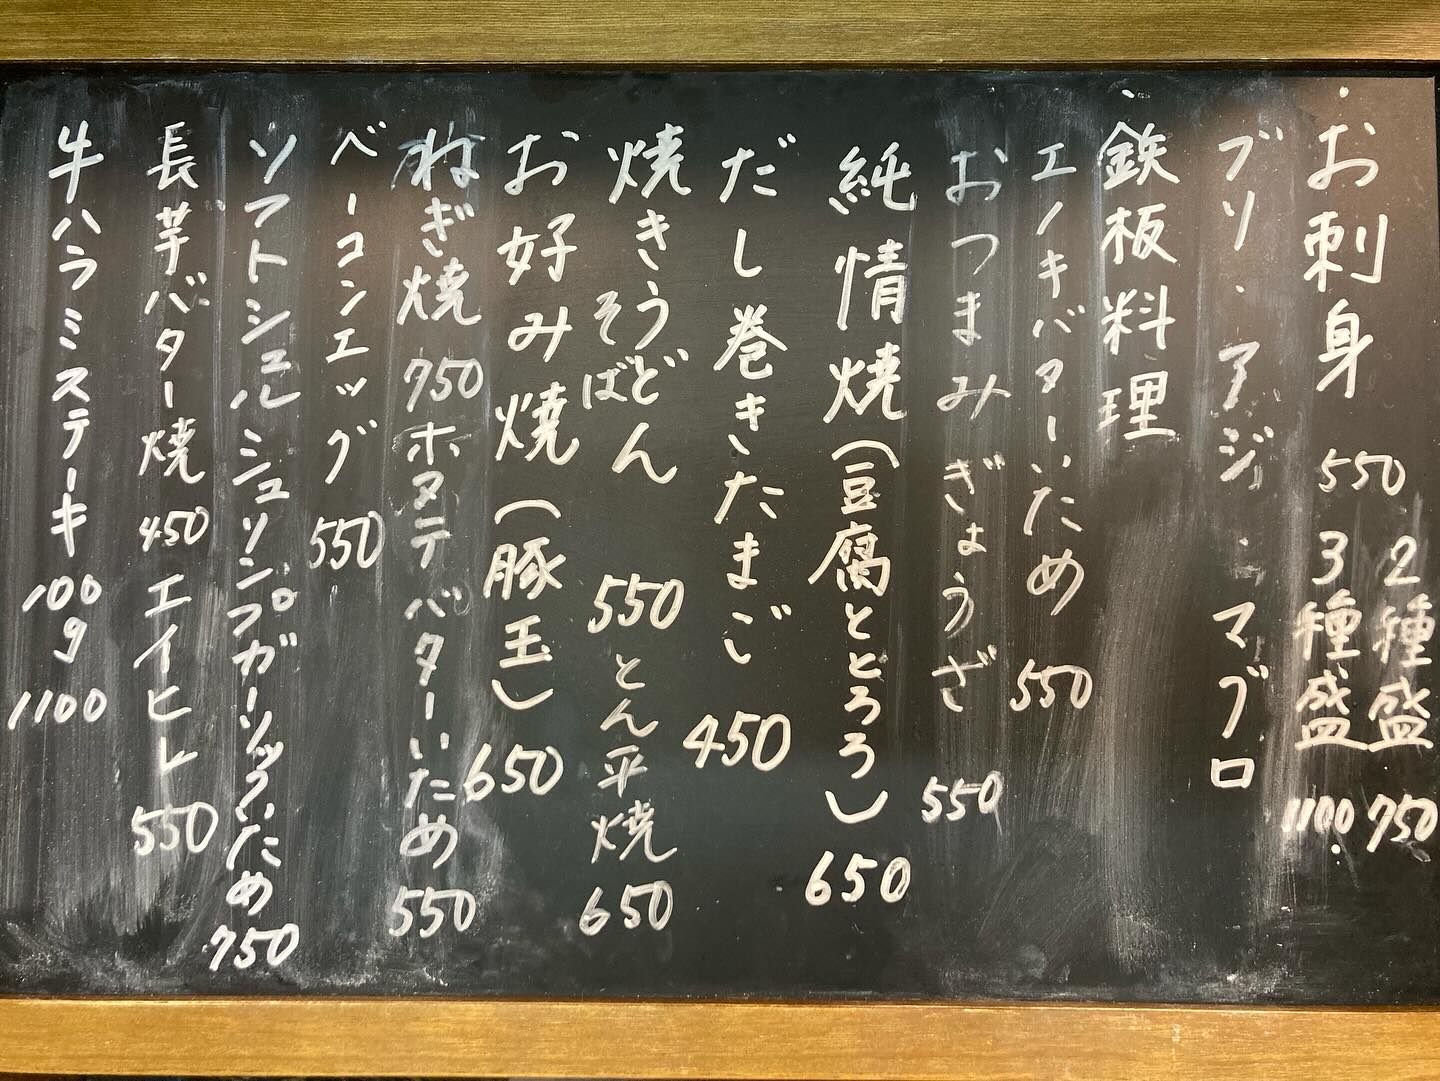 お刺身 550
2種盛 750
3種盛 1100
ブリ・アジ・マグロ
鉄板料理
エノキバターいため 550
おつまみぎょうざ 550
純情焼(豆腐ととろろ) 650
だし巻きたまご 450
焼きうどん
そば 550
とん平焼 650
お好み焼(豚玉) 650
ねぎ焼 750
ホタテバターいため 550
ベーコンエッグ 550
ソフトシェルシュリンプガーリックいため 750
長芋バター焼 450
エイヒレ 550
牛ハラミステーキ 100g 1100